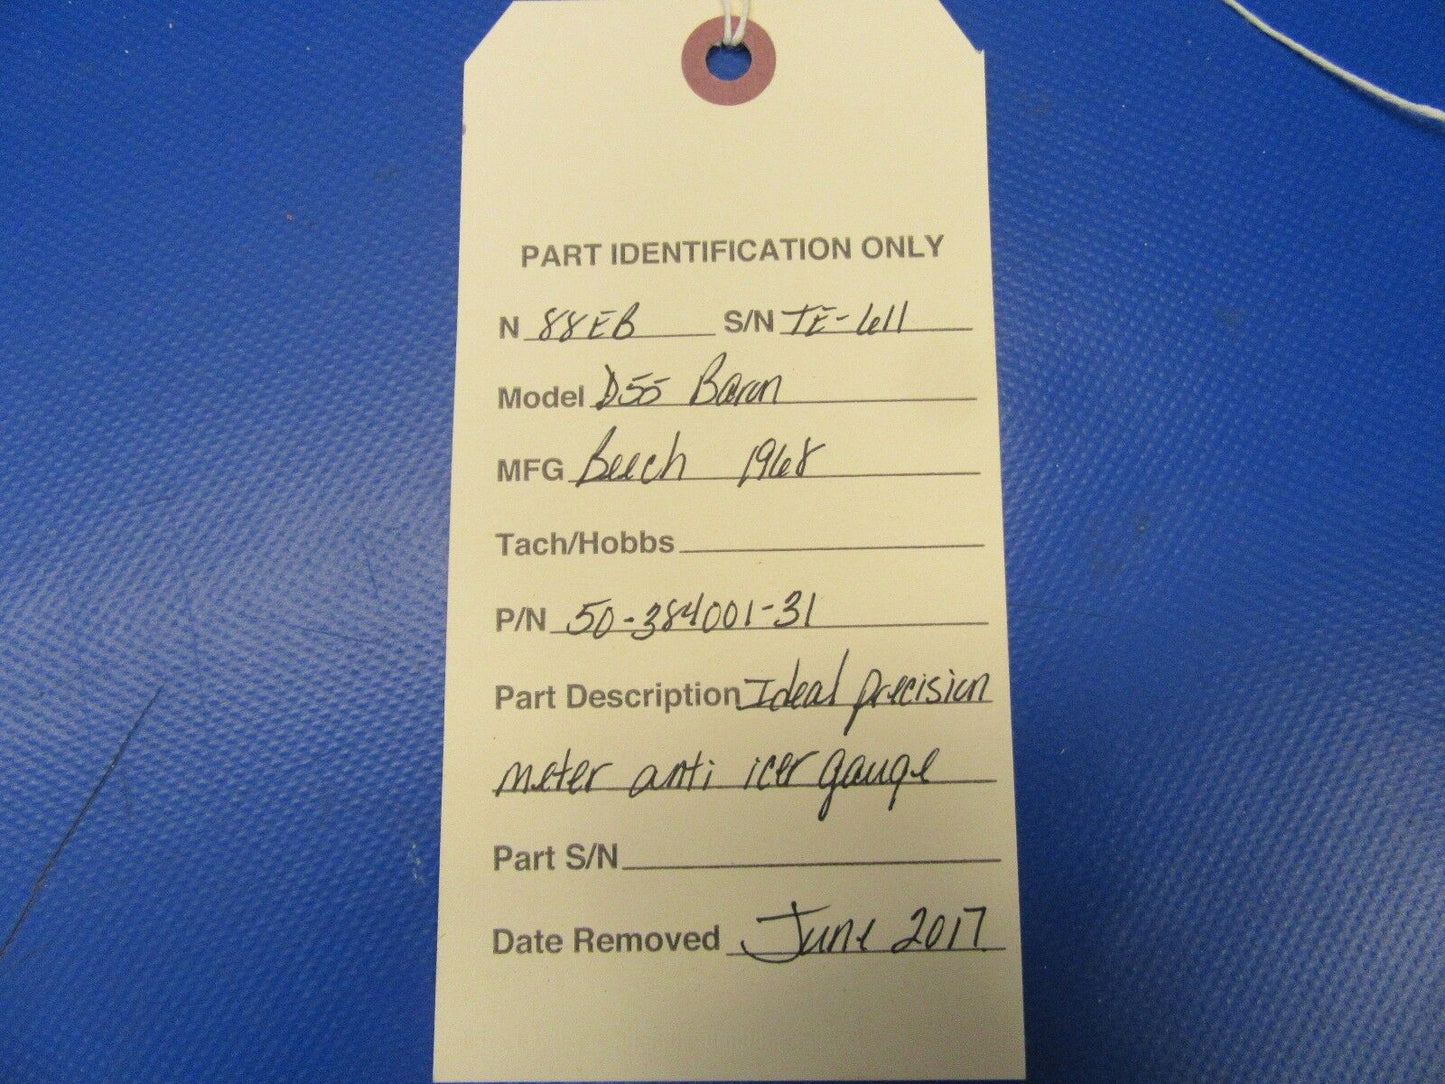 PART IDENTIFICATION ONLY
N 88EB S/N TE-611
Model D55 Baron
MFG Beech 1968
Tach/Hobbs
P/N 50-384001-31
Part Description Ideal precision
meter anti icer gauge
Part S/N
Date Removed June 2017